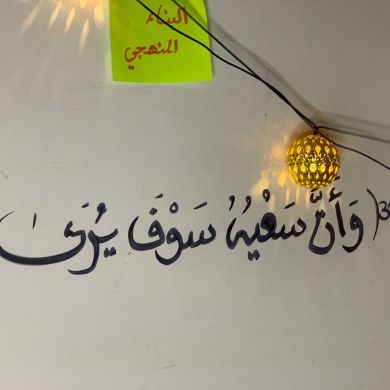 البناء
المنهجي
وَأَنَّ سَعْيَهُ سَوْفَ يُرَىٰ